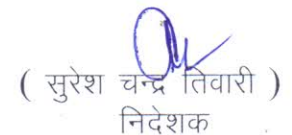 ( सुरेश चन्द्र तिवारी )
निदेशक